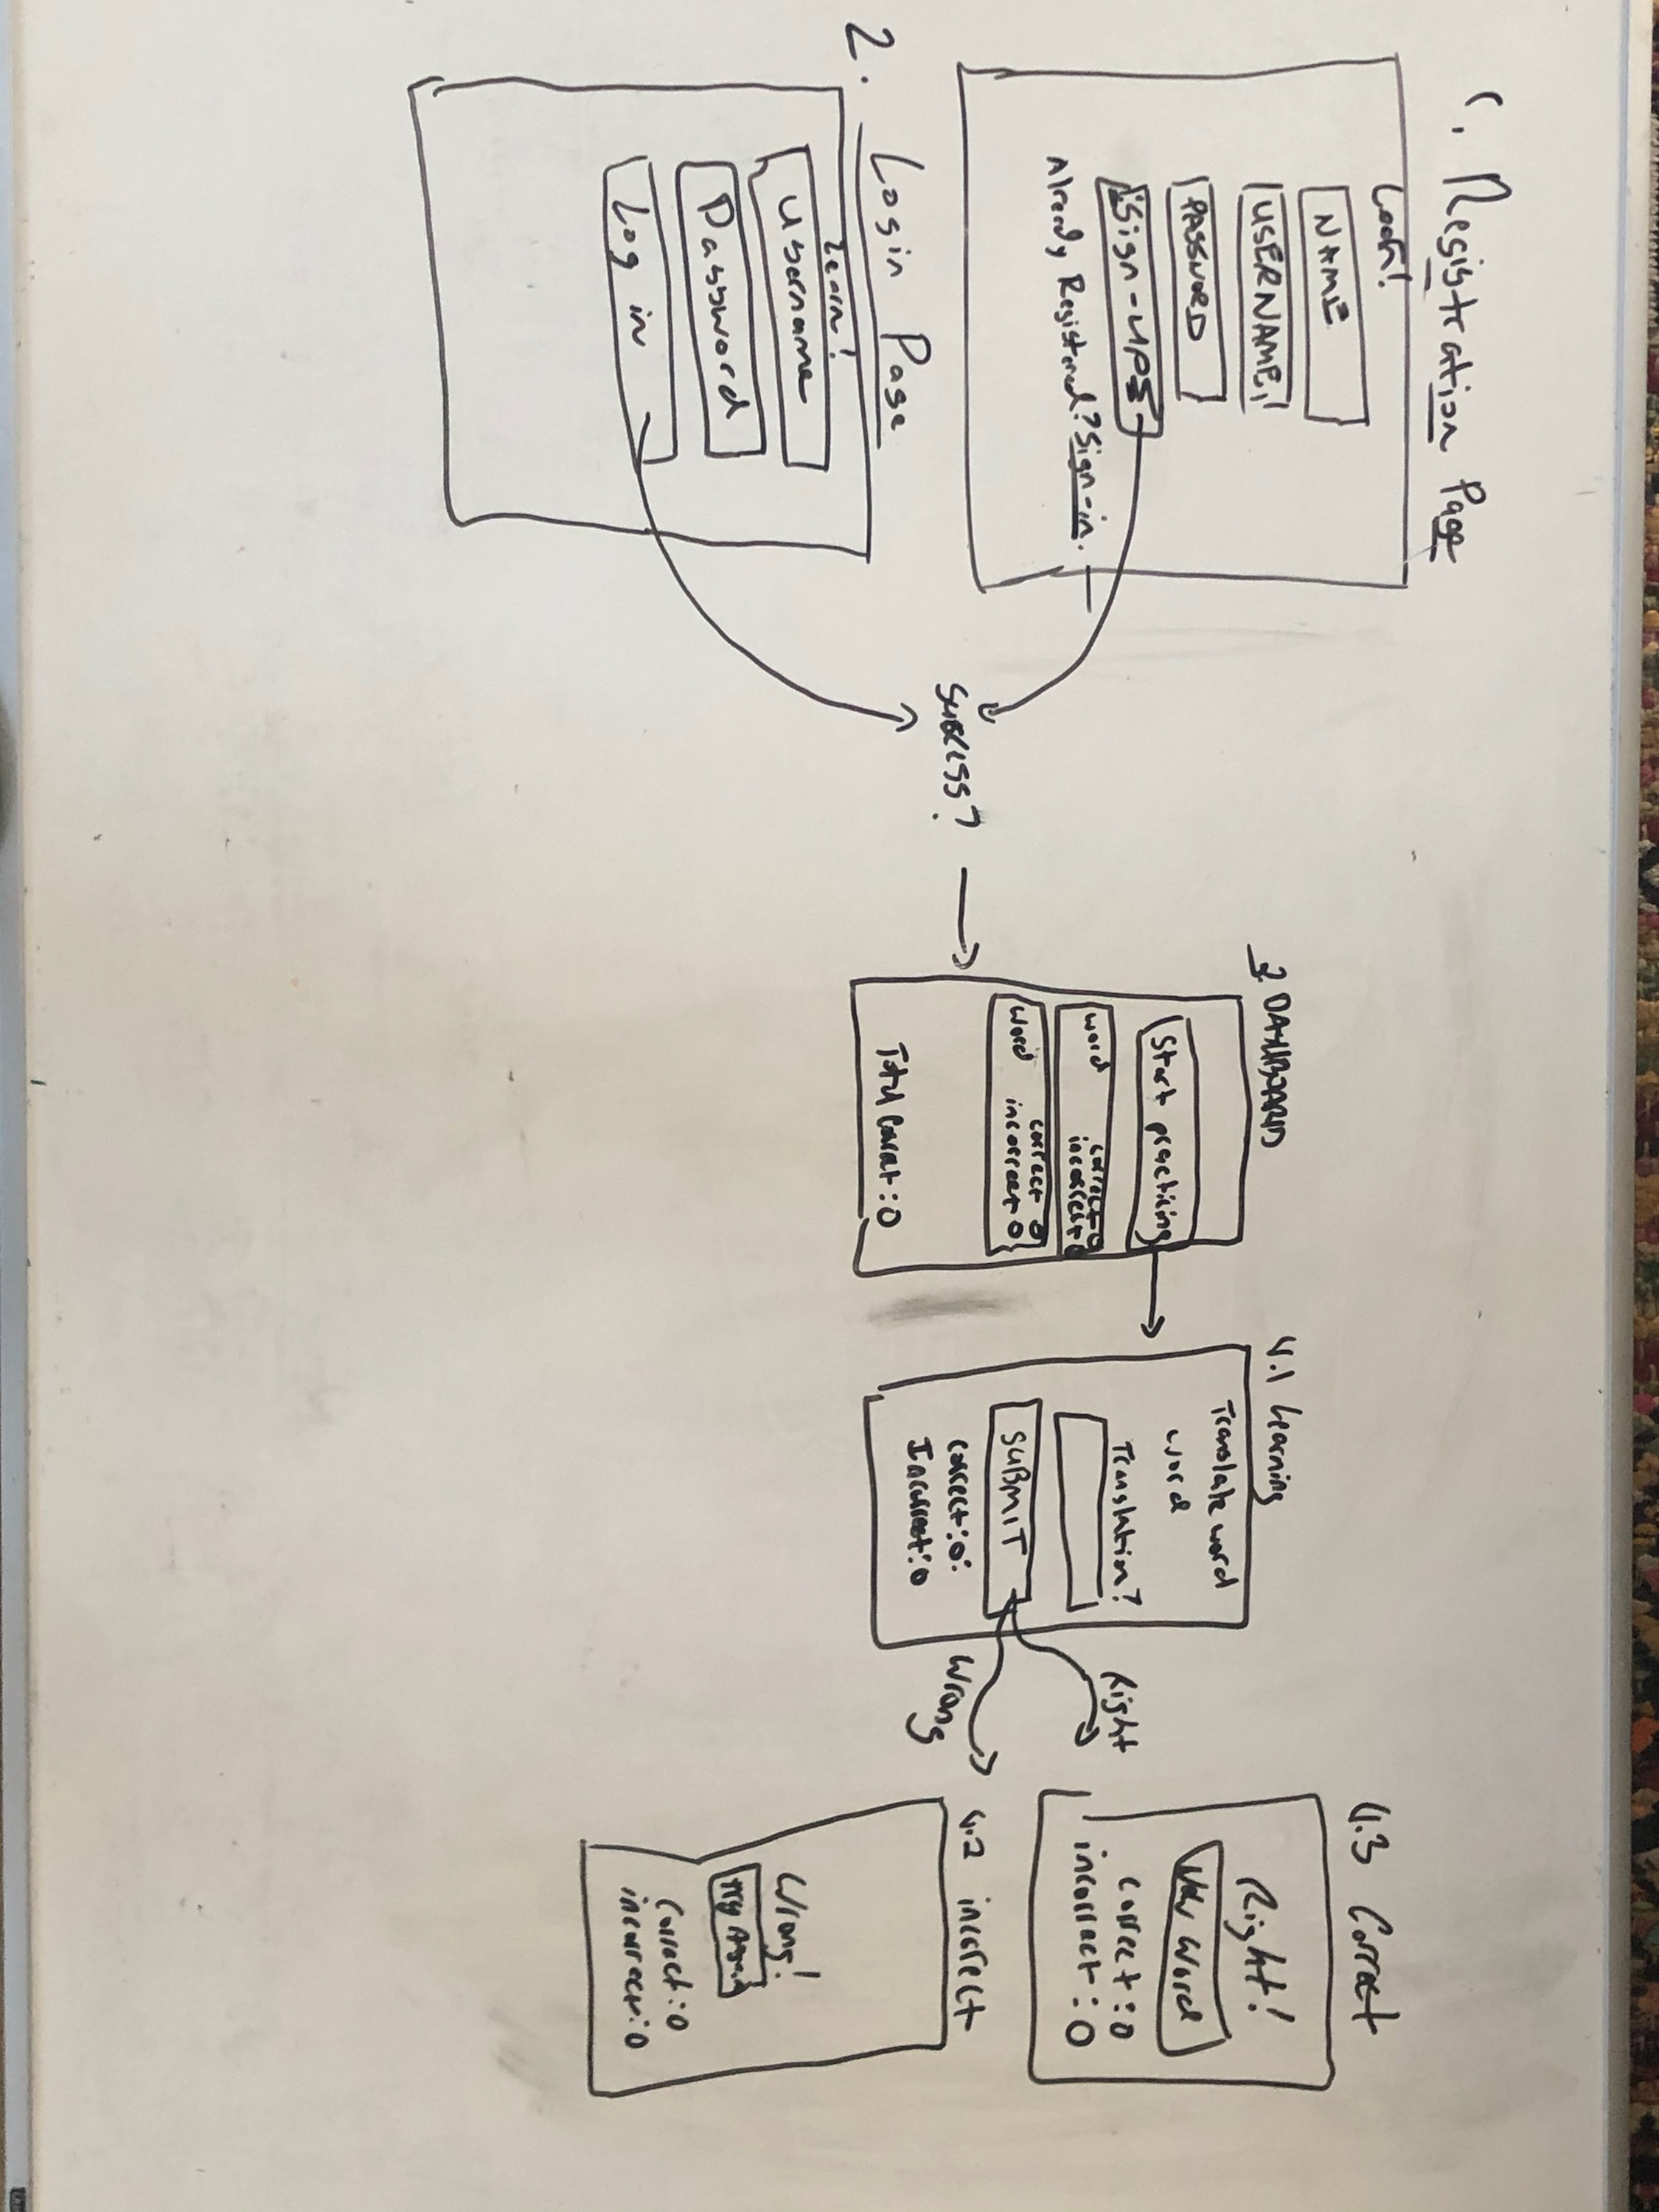 1. Registration Page
Learn!
NAME
USERNAME
PASSWORD
Sign-up
Already Registered? Sign-in.
2. Login Page
Learn!
Username
Password
Log in
Success?
3. DASHBOARD
Start practicing
word correct 0
incorrect 0
word correct 0
incorrect 0
Total Correct: 0
4.1 Learning
Translate word
word
Translation?
SUBMIT
correct: 0
Incorrect: 0
Right
Wrong
4.3 Correct
Right!
New Word
correct: 0
incorrect: 0
4.2 incorrect
Wrong!
Try Again
Correct: 0
incorrect: 0